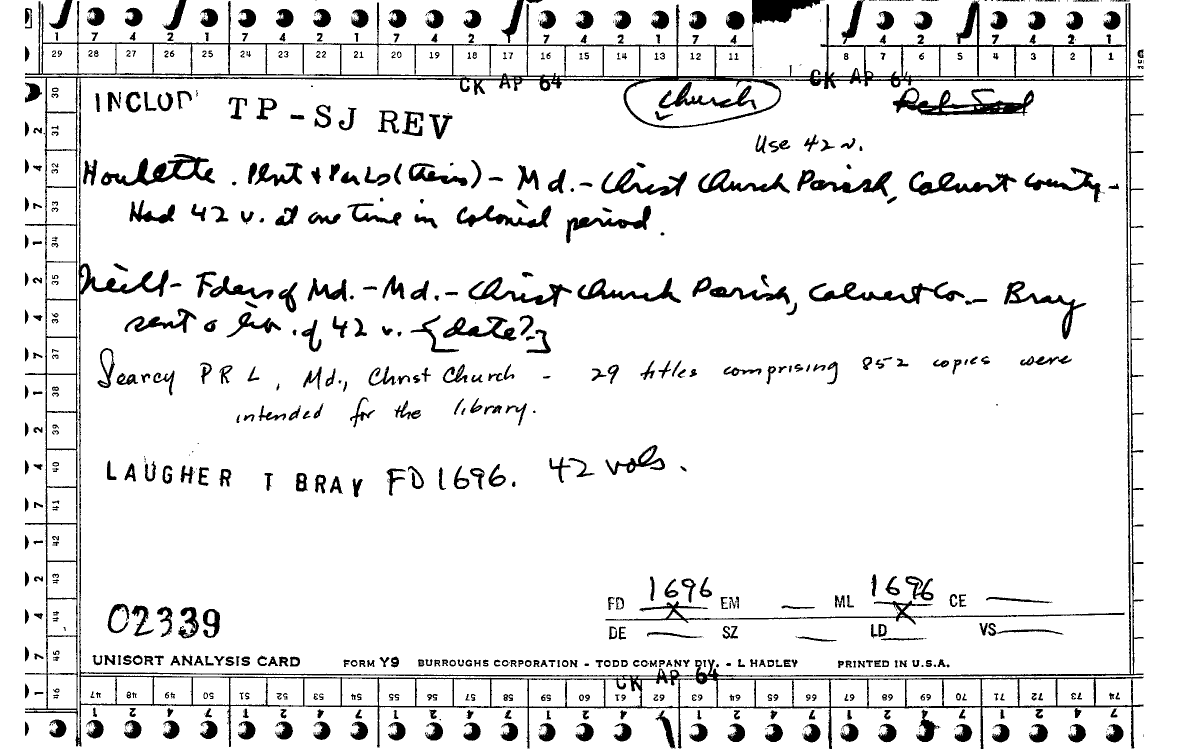 1 7 4 2 1 7 4 2 1 7 4 2 1 7 4 2 1 7 4 7 4 2 1 7 4 2 1
29 28 27 26 25 24 23 22 21 20 19 18 17 16 15 14 13 12 11 8 7 6 5 4 3 2 1
CK AP 64 CK AP 64
INCLUD TP-SJ REV Church
Use 42 v.
Houlette. Plnt & Par Ls (thesis) - Md. - Christ Church Parish, Calvert County -
Had 42 v. at one time in Colonial period.
Neill - Fders of Md. - Md. - Christ Church Parish, Calvert Co. - Bray
sent a lib. of 42 v. [date?]
Searcy PRL, Md., Christ Church - 29 titles comprising 852 copies were
intended for the library.
LAUGHER T BRAY FD 1696. 42 vols.
FD 1696 X EM — ML 1696 X CE —
02339
DE — SZ — LD VS —
UNISORT ANALYSIS CARD FORM Y9 BURROUGHS CORPORATION - TODD COMPANY DIV. - L HADLEY PRINTED IN U.S.A.
CK AP 64
47 48 49 50 51 52 53 54 55 56 57 58 59 60 61 62 63 64 65 66 67 68 69 70 71 72 73 74
1 2 4 7 1 2 4 7 1 2 4 7 1 2 4 7 1 2 4 7 1 2 4 7 1 2 4 7